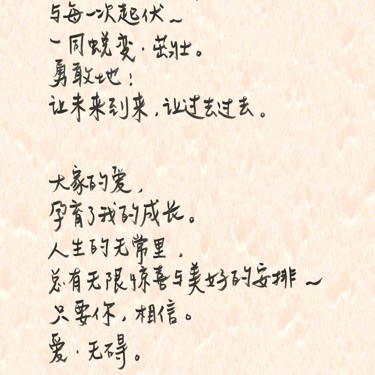 与每一次起伏~
一同蜕变·茁壮。
勇敢地！
让未来到来，让过去过去。
大家的爱，
孕育了我的成长。
人生的无常里，
总有无限惊喜与美好的安排~
只要你，相信。
爱·无碍。